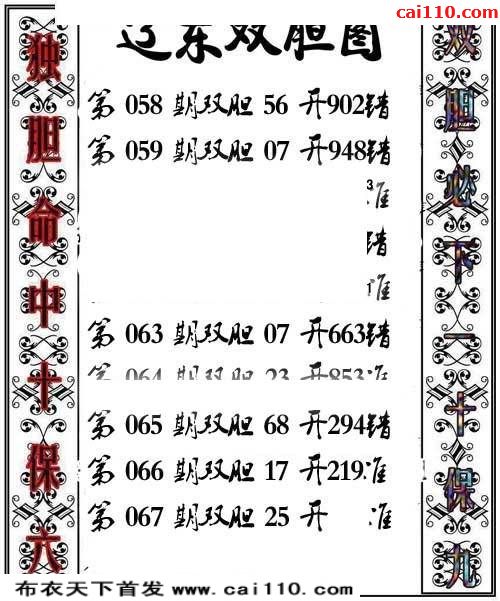 cai110.com
辽东双胆图
独胆命中十保六
双胆必下一十保九
第 058 期双胆 56 开902错
第 059 期双胆 07 开948错
准
错
准
第 063 期双胆 07 开663错
第 064 期双胆 23 开853准
第 065 期双胆 68 开294错
第 066 期双胆 17 开219准
第 067 期双胆 25 开 准
布衣天下首发 www.cai110.com